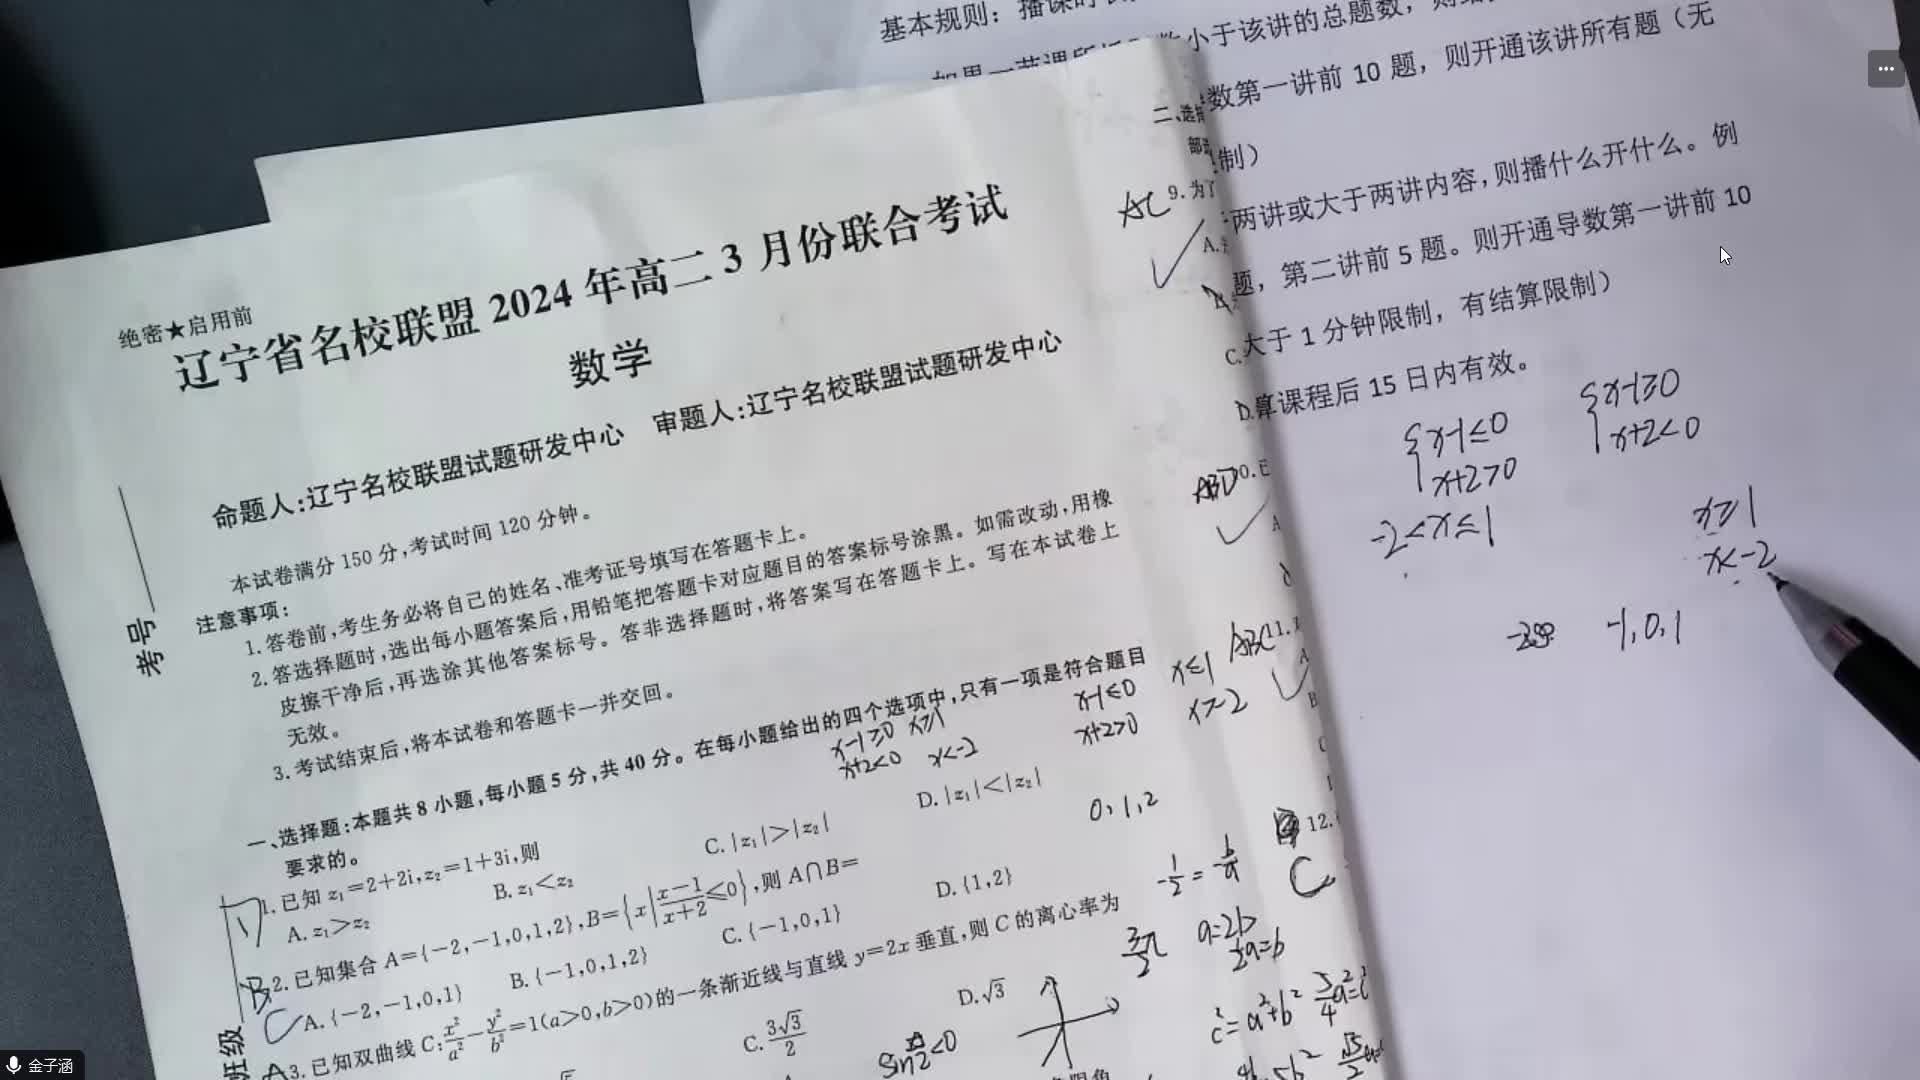 基本规则：播课时
数小于该讲的总题数，则
数第一讲前 10 题，则开通该讲所有题（无
制）
两讲或大于两讲内容，则播什么开什么。例
题，第二讲前 5 题。则开通导数第一讲前 10
大于 1 分钟限制，有结算限制）
算课程后 15 日内有效。
绝密★启用前
辽宁省名校联盟 2024 年高二 3 月份联合考试
数学
命题人:辽宁名校联盟试题研发中心 审题人:辽宁名校联盟试题研发中心
本试卷满分 150 分,考试时间 120 分钟。
考号
注意事项:
1. 答卷前,考生务必将自己的姓名、准考证号填写在答题卡上。
2. 答选择题时,选出每小题答案后,用铅笔把答题卡对应题目的答案标号涂黑。如需改动,用橡
皮擦干净后,再选涂其他答案标号。答非选择题时,将答案写在答题卡上。写在本试卷上
无效。
3. 考试结束后,将本试卷和答题卡一并交回。
一、选择题:本题共 8 小题,每小题 5 分,共 40 分。在每小题给出的四个选项中,只有一项是符合题目
要求的。
x-1≥0 x≥1
x+2<0 x<-2
x-1≤0 x≤1
x+2>0 x>-2
1. 已知 z₁=2+2i,z₂=1+3i,则
A. z₁>z₂ B. z₁<z₂ C. |z₁|>|z₂| D. |z₁|<|z₂|
0,1,2
B
2. 已知集合 A={-2,-1,0,1,2},B={x|(x-1)/(x+2)≤0},则 A∩B=
C
A. {-2,-1,0,1} B. {-1,0,1,2} C. {-1,0,1} D. {1,2}
A
3. 已知双曲线 C:x²/a²-y²/b²=1(a>0,b>0)的一条渐近线与直线 y=2x 垂直,则 C 的离心率为
C. 3√3/2 D. √3
班级
二、选
部
AC
9. 为了
A.
C.
D.
ABD
A
ABC
11.
A
B
12.
C
-1/2=-b/a
a=2b
1/2a=b
c²=a²+b² 5/4a²=c²
{x-1≤0
x+2>0
{x-1≥0
x+2<0
-2<x≤1
x≥1
x<-2
-1,0,1
金子涵